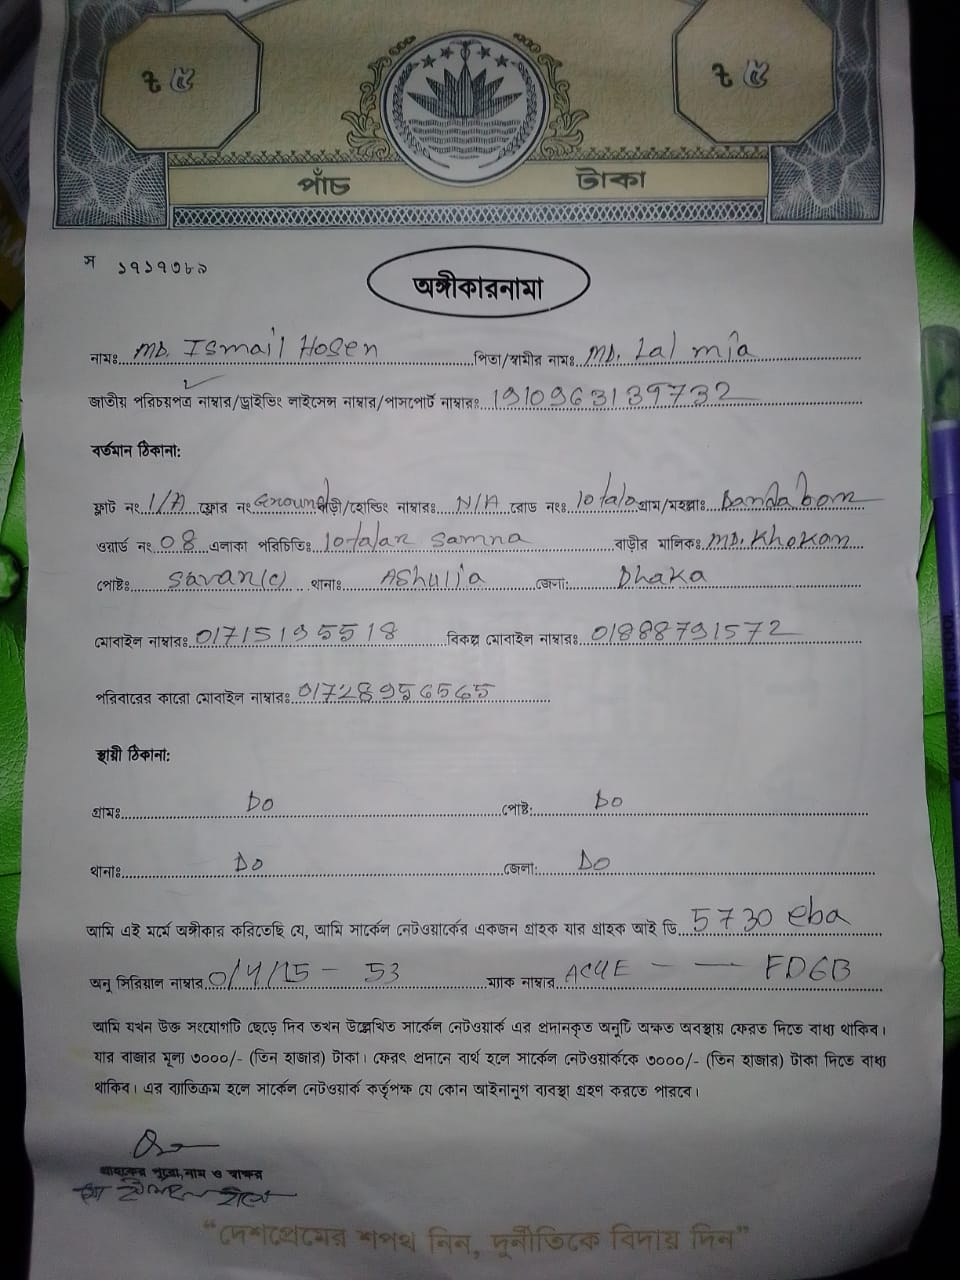 ৳ ৫ ৳ ৫
পাঁচ টাকা
স ১৭১৭৩৮৯
অঙ্গীকারনামা
নামঃ MD. Ismail Hosen পিতা/স্বামীর নামঃ MD. Lal mia
জাতীয় পরিচয়পত্র নাম্বার/ড্রাইভিং লাইসেন্স নাম্বার/পাসপোর্ট নাম্বারঃ 1910963139732
বর্তমান ঠিকানা:
ফ্লাট নং 1/A ফ্লোর নং Ground বাড়ী/হোল্ডিং নাম্বারঃ N/A রোড নংঃ 10 tala গ্রাম/মহল্লাঃ Bandabom
ওয়ার্ড নং 08 এলাকা পরিচিতিঃ 10-talar Samna বাড়ীর মালিকঃ MD. Khokon
পোষ্টঃ Savar (c) থানাঃ Ashulia জেলা: Dhaka
মোবাইল নাম্বারঃ 01715195518 বিকল্প মোবাইল নাম্বারঃ 01888791572
পরিবারের কারো মোবাইল নাম্বারঃ 01728956565
স্থায়ী ঠিকানা:
গ্রামঃ Do পোষ্ট: Do
থানাঃ Do জেলা: Do
আমি এই মর্মে অঙ্গীকার করিতেছি যে, আমি সার্কেল নেটওয়ার্কের একজন গ্রাহক যার গ্রাহক আই ডি 5730 eba
অনু সিরিয়াল নাম্বার 0/4/15 - 53 ম্যাক নাম্বার AC4E - — FDGB
আমি যখন উক্ত সংযোগটি ছেড়ে দিব তখন উল্লেখিত সার্কেল নেটওয়ার্ক এর প্রদানকৃত অনুটি অক্ষত অবস্থায় ফেরত দিতে বাধ্য থাকিব।
যার বাজার মূল্য ৩০০০/- (তিন হাজার) টাকা। ফেরৎ প্রদানে ব্যর্থ হলে সার্কেল নেটওয়ার্ককে ৩০০০/- (তিন হাজার) টাকা দিতে বাধ্য
থাকিব। এর ব্যতিক্রম হলে সার্কেল নেটওয়ার্ক কর্তৃপক্ষ যে কোন আইনানুগ ব্যবস্থা গ্রহণ করতে পারবে।
গ্রাহকের পুরো নাম ও স্বাক্ষর
“দেশপ্রেমের শপথ নিন, দুর্নীতিকে বিদায় দিন”